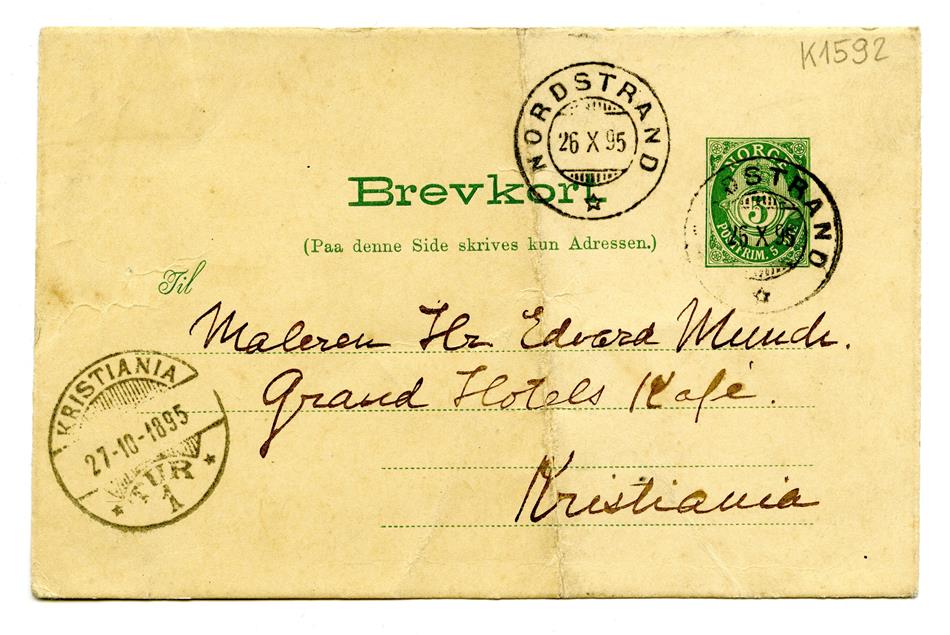 K1592
NORDSTRAND
26 X 95
NORGE
5
POSTFRIM. 5
DSTRAND
26 X 95
Brevkort.
(Paa denne Side skrives kun Adressen.)
Til
Maleren Hr Edvard Munch.
Grand Hotels Kafé.
Kristiania
KRISTIANIA
27-10-1895
TUR
1